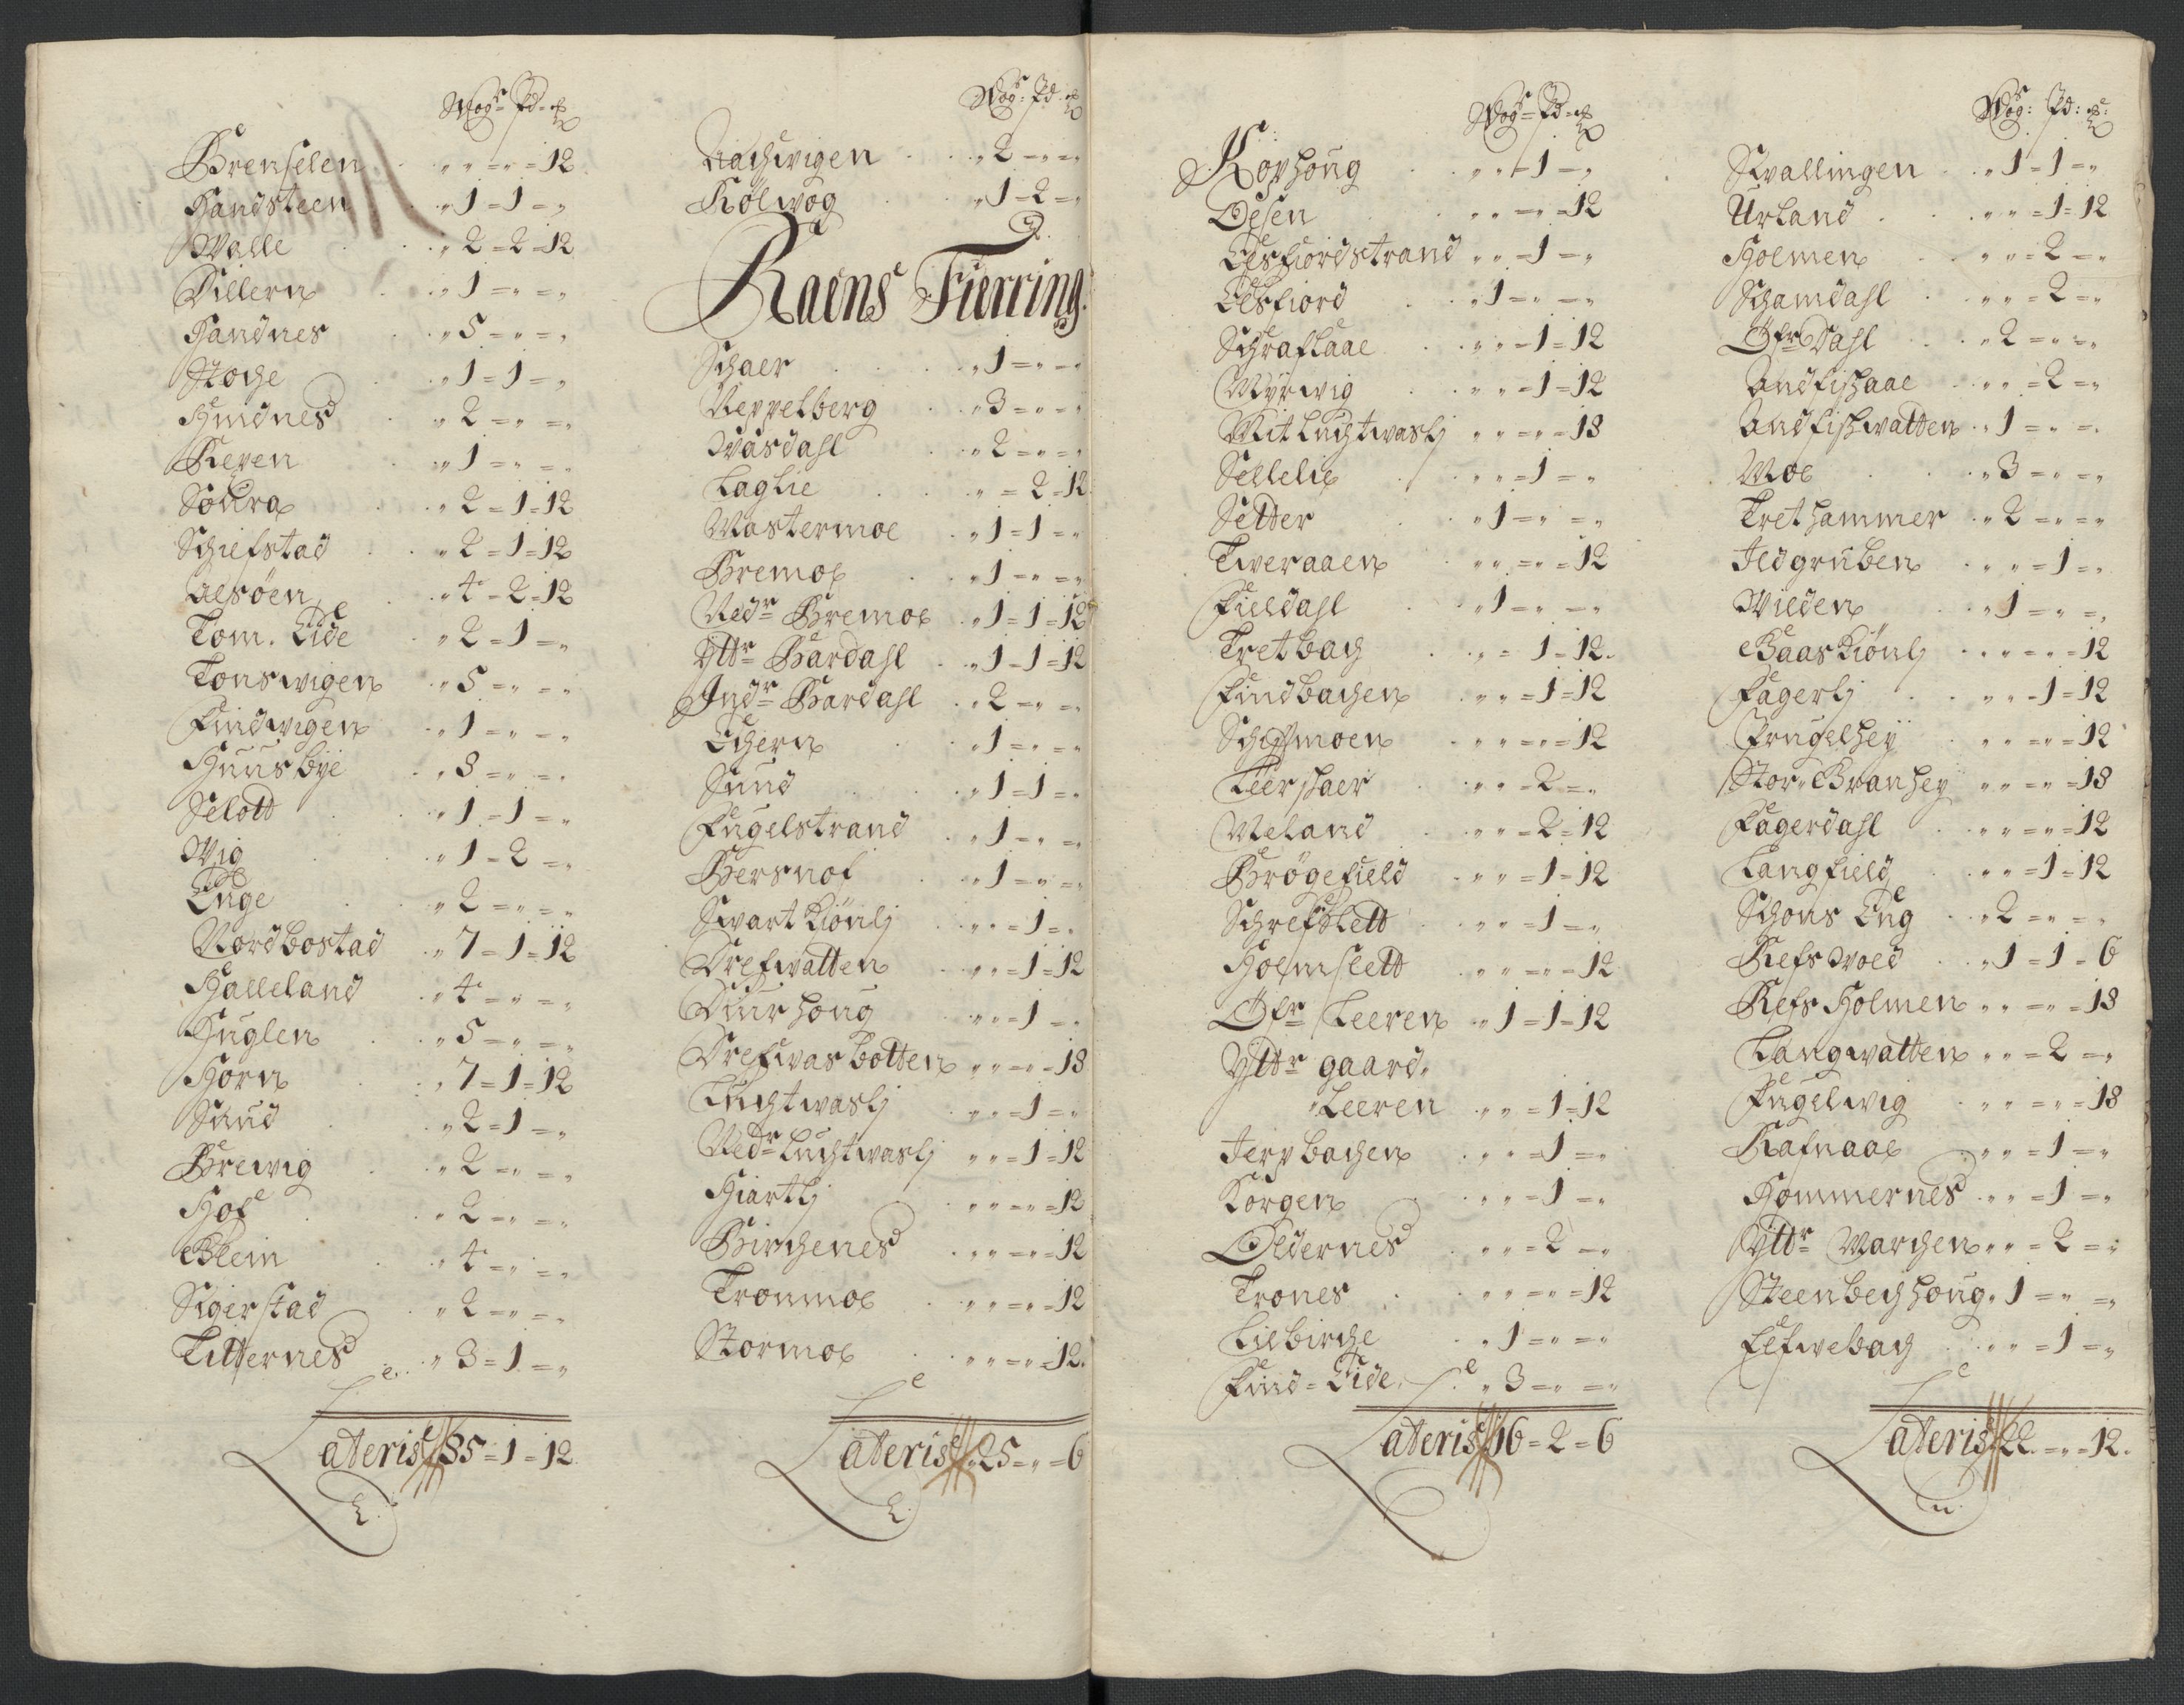 Wog:r Pd: ℔
Brenselen „ „ = „ = 12
Handsteen „ 1 = 1 = „
Walle „ 2 = 2 = 12
Dillern „ 1 = „ = „
Handnes „ 5 = „ = „
Stoche „ 1 = 1 = „
Hindnes „ 2 = „ = „
Reven „ 1 = „ = „
Soura „ 2 = 1 = 12
Schiefstad „ 2 = 1 = 12
Alsøen „ 4 = 2 = 12
Tom. Eide „ 2 = 1 = „
Tonswigen „ 5 = „ = „
Findwigen „ 1 = „ = „
Huusbye „ 3 = „ = „
Selott „ 1 = 1 = „
Wig „ 1 = 2 = „
Enge „ 2 = „ = „
Nordbostad „ 7 = 1 = 12
Halleland „ 4 = „ = „
Huglen „ 5 = „ = „
Horn „ 7 = 1 = 12
Sund „ 2 = 1 = „
Brewig „ 2 = „ = „
Hof „ 2 = „ = „
Blein „ 4 = „ = „
Sigerstad „ 2 = „ = „
Titternes „ 3 = 1 = „
Lateris 85 = 1 = 12
Wog:r Pd: ℔
Aachwigen „ 2 = „ = „
Kølwog „ 1 = 2 = „
2.
Raens Fierring.
Schaer „ 1 = „ = „
Neppelberg „ 3 = „ = „
Wasdahl „ 2 = „ = „
Laglie „ = 2 = 12
Mastermoe „ 1 = 1 = „
Bremoe „ 1 = „ = „
Nedr Bremoe „ 1 = 1 = 12
Yttr Bardahl „ 1 = 1 = 12
Indr Bardahl „ 2 = „ = „
Echern „ 1 = „ = „
Sund „ 1 = 1 = „
Fugelstrand „ 1 = „ = „
Hersnof „ 1 = „ = „
Swart Kiønlj „ „ = 1 = „
Drefwatten „ „ = 1 = 12
Duurhoug „ „ = 1 = „
Drefwasbotten „ „ = „ = 18
Luchtwaslj „ „ = 1 = „
Nedr Luchtwaslj „ „ = 1 = 12
Hiartlj „ „ = „ = 12
Birchenes „ „ = „ = 12
Tronmoe „ „ = „ = 12
Stormoe „ „ = „ = 12.
Lateris „ 25 = „ = 6
Wog:r Pd: ℔
Kophoug „ „ = 1 = „
Oesen „ „ = „ = 12
Elsfiordstrand „ „ = 1 = „
Elsfiord „ 1 = „ = „
Schraflaae „ „ = 1 = 12
Myrwig „ „ = 1 = 12
Mitluchtwaslj „ „ = „ = 18
Sellelie „ „ = 1 = „
Setter „ 1 = „ = „
Tweraaen „ „ = „ = 12
Fieldahl „ 1 = „ = „
Tretbach „ = 1 = 12.
Findbachen „ „ = 1 = 12
Schiffmoen „ „ = „ = 12
Leerskaer „ „ = 2 = „
Meland „ „ = 2 = 12
Brøgefield „ „ = 1 = 12
Schrefslett „ „ = 1 = „
Holmslett „ „ = „ = 12
Øfr Leeren „ 1 = 1 = 12
Yttr gaard„
„Leeren „ „ = 1 = 12
Jerpbachen „ „ = 1 = „
Korgen „ „ = 1 = „
Oldernes „ „ = 2 = „
Trones „ „ = „ = 12
Lilbirche „ 1 = „ = „
Find = Eide „ 3 = „ = „
Lateris 16 = 2 = 6
Wog:r Pd: ℔:
Swallingen „ 1 = 1 = „
Urland „ „ = 1 = 12
Holmen „ „ = 2 = „
Schamdahl „ „ = 2 = „
Øfr Dahl „ 2 = „ = „
Andfiskaae „ „ = 2 = „
Andfiskwatten „ 1 = „ = „
Moe „ 3 = „ = „
Trethammer „ 2 = „ = „
Ildgruben „ „ = 1 = „
Wilden „ 1 = „ = „
Baaskiønlj „ „ = „ = 12
Fagerlj „ „ = 1 = 12
Frugelhey „ „ = „ = 12
Stor„ Branhey „ „ = „ = 18
Fagerdahl „ „ = „ = 12
Langfield „ „ = 1 = 12
Schons Eng „ 2 = „ = „
Refs Wold „ 1 = 1 = 6
Refs Holmen „ „ = „ = 18
Langwatten „ „ = 2 = „
Fugelwig „ „ = „ = 18
Rafnaae „ „ = 1 = „
Hommernes „ „ = 1 = „
Yttr Marchen „ „ = 2 = „
Steenbechhoug „ 1 = „ = „
Lefwebach „ „ = 1 = „
Lateris 22. = „ = 12.